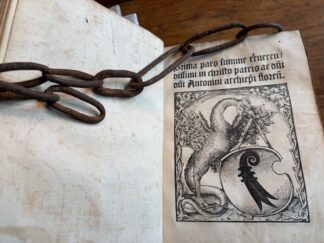 Prima pars summe reueren
dissimi in christo patris ac dñi
dñi Antonini archiepi floreñ.